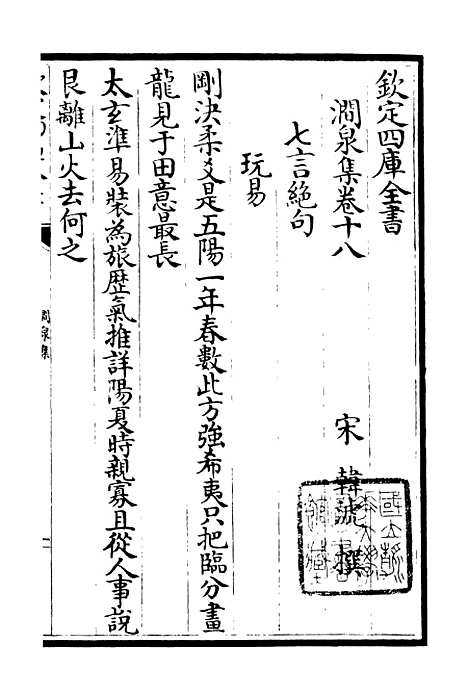 欽定四庫全書
澗泉集卷十八
宋 韓淲 撰
七言絶句
玩易
剛決柔爻是五陽一年春數此方強希夷只把臨分畫
龍見于田意最長
太玄準易裝為旅歴氣推詳陽夏時親寡且從人事說
艮離山火去何之
澗泉集